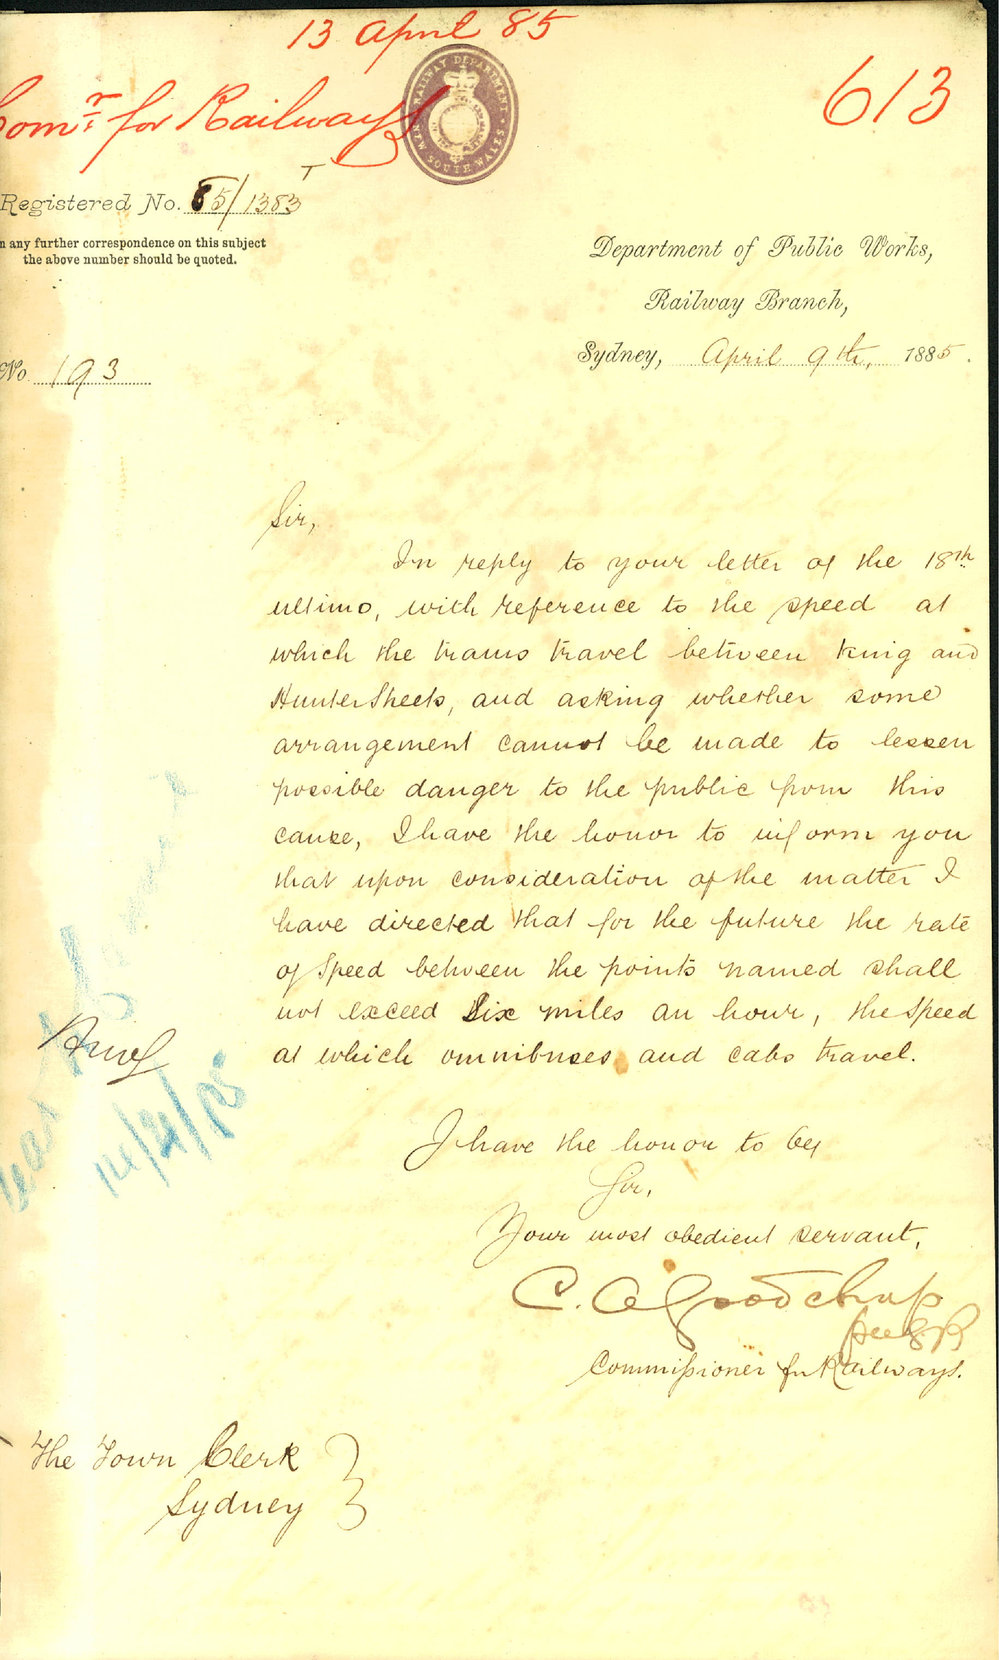 13 April 85
Comr. for Railways
613
RAILWAY DEPARTMENT
NEW SOUTH WALES
Registered No. 85/1383 T
n any further correspondence on this subject
the above number should be quoted.
Department of Public Works,
Railway Branch,
Sydney, April 9th, 1885.
No. 193
Sir,
In reply to your letter of the 18th
ultimo, with reference to the speed at
which the trams travel between King and
Hunter Streets, and asking whether some
arrangement cannot be made to lessen
possible danger to the public from this
cause, I have the honor to inform you
that upon consideration of the matter I
have directed that for the future the rate
of speed between the points named shall
not exceed Six miles an hour, the speed
at which omnibuses and cabs travel.
I have the honor to be,
Sir,
Your most obedient servant,
C. A. Goodchap
Commissioner for Railways.
14/4/85
The Town Clerk
Sydney